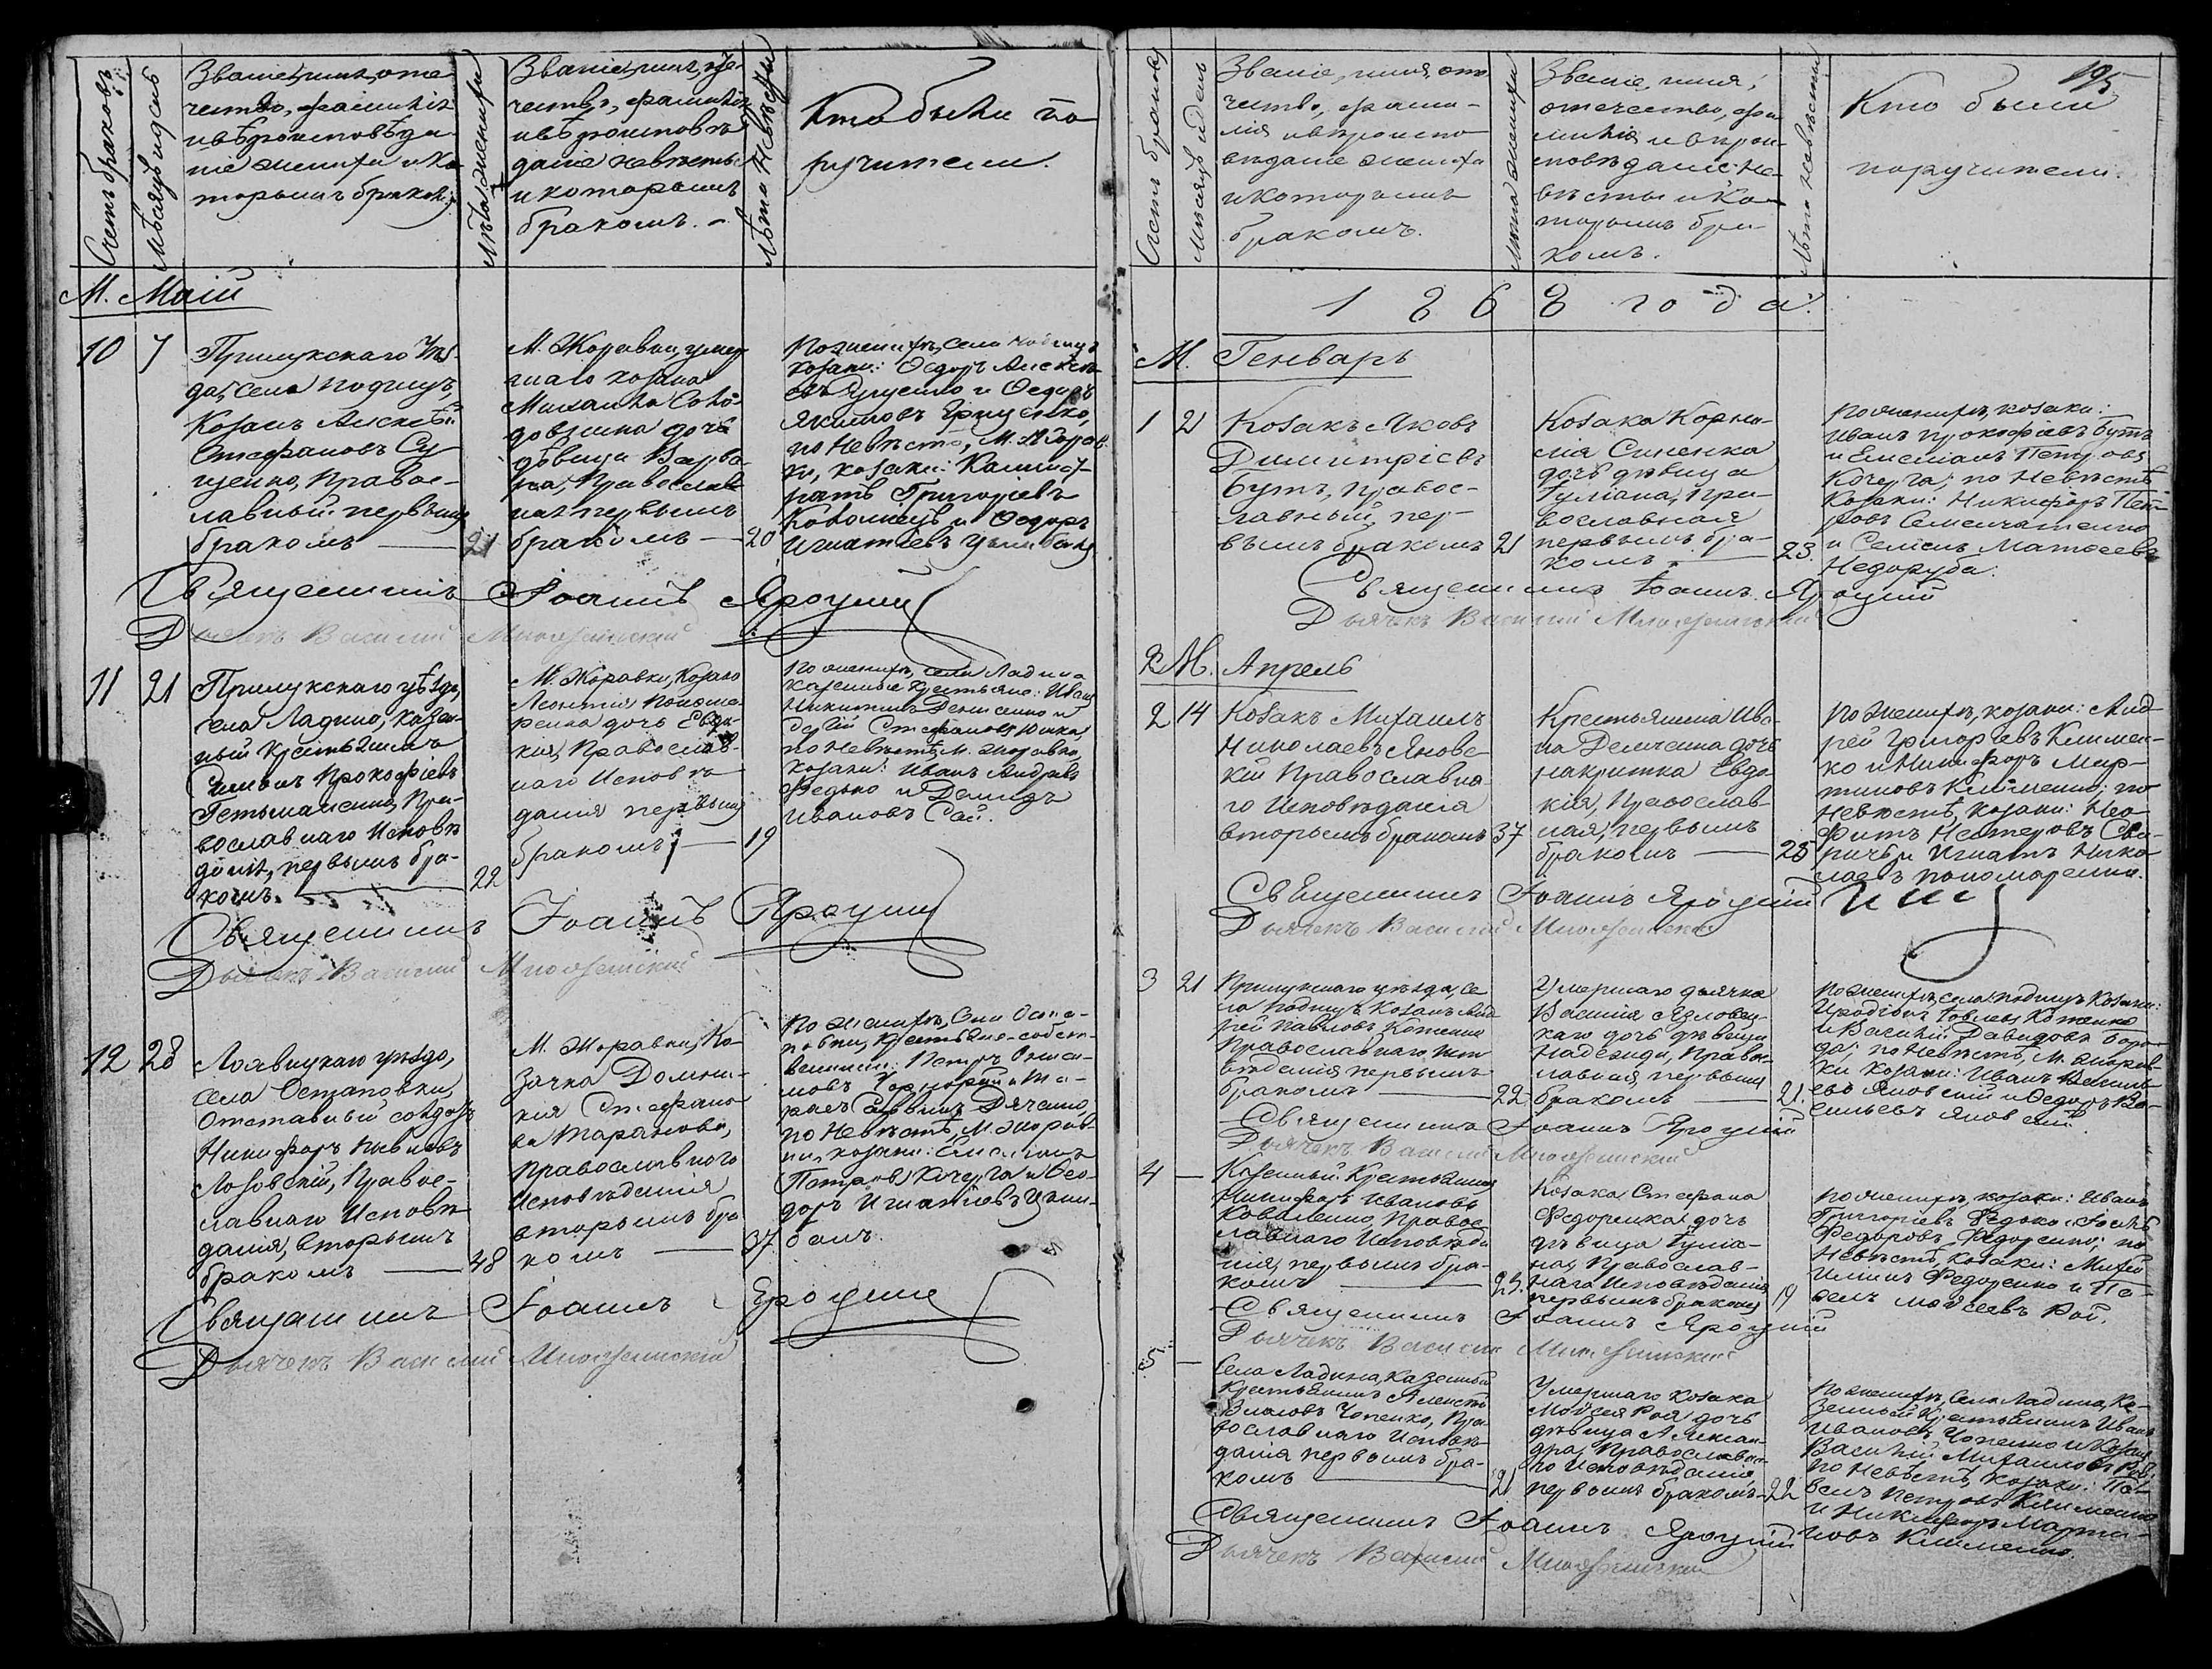 Счетъ браковъ
Мѣсяцъ и день
Званіе, имя, оте
чество, фамилія
и вѣроисповѣда-
ніе жениха и ко
торымъ бракомъ
Лѣта жениха
Званіе, имя, оте-
чество, фамилія
и вѣроисповѣ
даніе невѣсты
и которымъ
бракомъ. -
Лѣта невѣсты
Кто были по
ручители.
М. Маій
10
7
Прилукскаго уѣз
да, села Подищъ,
Козакъ Алексѣй
Стефановъ Су
щенко, Правос-
лавный первымъ
бракомъ
21
М. Журавки, умер
шаго козака
Михаила Соло-
дочь
дѣвица Варва-
ра, Православ
ная первымъ
бракомъ
20
По женихѣ, села Подищъ
козаки: Ѳедоръ Алексѣ-
евъ и Ѳедоръ
Якимовъ Грищенко,
по невѣстѣ, М. Журав
ки, козаки: Калист-
ратъ Григоріевъ
Коломіецъ и Ѳедоръ
Игнатіевъ Цымбалъ
Священникъ Іоаннъ Яроцкій
Дьячекъ Василий
11
21
Прилукскаго уѣзда,
села Ладино, казен-
ный крестьянинъ
Прокофіевъ
Гетьманенко, Пра-
вославнаго Исповѣ
данія, первымъ бра-
комъ.
22
М. Журавки, Козака
Леонтія Пономо
ренка дочь Евдо-
кія, Православ-
наго Исповѣ
данія первымъ
бракомъ
19
По женихѣ, села Ладина
казенные крестьяне: Иванъ
Никитинъ Денисенко и
Стефановъ
по невѣстѣ, М. Журавки,
козаки: Иванъ Андреевъ
Федько и Демидъ
Ивановъ Сай.
Священникъ Іоаннъ Яроцкій
Дьячекъ Василий
12
28
Лохвицкаго уѣзда,
села Остаповки,
Отставный солдатъ
Никифоръ Павловъ
Лозовскій, Правос-
лавнаго Исповѣ
данія, вторымъ
бракомъ
48
М. Журавки, Ко-
зачка Домни-
кія Стефано
ва Таранова,
Православнаго
Исповѣданія
вторымъ бра
комъ
37
По женихѣ, села Оста-
повки, крестьяне-собст-
венники: Петръ
и Та-
расъ Саввинъ Дяченко,
по невѣстѣ, М. Журав-
ки, козаки: Емеліанъ
Петровъ Кочерга и Ѳео-
доръ Игнатіевъ Цым-
балъ.
Священникъ Іоаннъ Яроцкій
Дьячекъ Василий
195
Счетъ браковъ
Мѣсяцъ и день
Званіе, имя, оте
чество, фами-
лія и вѣроиспо
вѣданіе жениха
и которымъ
бракомъ.
Лѣта жениха
Званіе, имя,
отечество, фа
милія и вѣрои
сповѣданіе не-
вѣсты и ко-
торымъ бра-
комъ.
Лѣта невѣсты
Кто были
поручители.
1868 года.
М. Генварь
1
21
Козакъ Яковъ
Димитріевъ
Бутъ, правос-
лавный, пер-
вымъ бракомъ
21
Козака Корни-
лія Синенка
дочь дѣвица
Іуліана, Пра-
вославная
первымъ бра-
комъ.
23.
По женихѣ, козаки:
Иванъ Прокофіевъ Бутъ
и Емеліанъ Петровъ
Кочерга; по невѣстѣ
Козаки: Никифоръ Пет-
ровъ
и Семенъ Матвеевъ
Недоруба.
Священникъ Іоаннъ Яроцкій
Дьячекъ Василий
2 М. Апрель
2
14
Козакъ Михаилъ
Николаевъ Яновс-
кій Православна
го Исповѣданія
вторымъ бракомъ
37
Крестьянина Ива-
на Демченка дочь
накритка Евдо-
кія, Православ-
ная, первымъ
бракомъ
25
По женихѣ, козаки: Анд-
рей Григоріевъ Климен-
ко и Никифоръ Мар-
тиновъ Клименко; по
невѣстѣ, козаки: Нео-
фитъ Нестеровъ
и Игнатъ Нико-
лаевъ Пономаренко.
Священникъ Іоаннъ Яроцкій
Дьячекъ Василий
3
21
Прилукскаго уѣзда, се
ла Подищъ Козакъ Анд
рей Павловъ Коженко
Православнаго Испо
вѣданія первымъ
бракомъ
22
Умершаго дьячка
Василія Язловец-
каго дочь дѣвица
Надежда, Правос-
лавная, первымъ
бракомъ
21.
По женихѣ, села Подищъ Козаки:
Иродіонъ Коженко
и Василій Давидовъ Боро-
да; по невѣстѣ, М. Журав-
ки козаки: Иванъ Василь-
евъ Яновскій и Ѳедоръ Ва-
сильевъ Яновскій.
Священникъ Іоаннъ Яроцкій
Дьячекъ Василий
4
—
Казенный Крестьянинъ
Никифоръ Ивановъ
Коваленко, Правос
лавнаго Исповѣда
нія, первымъ бра-
комъ
23.
Козака Стефана
Федоренка дочь
дѣвица Іуліа-
на, Православ-
наго Исповѣданія
первымъ бракомъ
19
По женихѣ, козаки: Иванъ
Григоріевъ Федько и
Федоровъ Федоренко; по
невѣстѣ, козаки:
Федоренко и Па-
велъ Моѵсеевъ Рой.
Священникъ Іоаннъ Яроцкій
Дьячекъ Василий
5.
—
Села Ладина, Казенный
Крестьянинъ Алексѣй
Власовъ Чопенко, Пра
вославнаго Исповѣ-
данія первымъ бра-
комъ
21
Умершаго козака
Моѵсея Роя дочь
дѣвица Алексан-
дра, Православна-
го Исповѣданія
первымъ бракомъ
22
По женихѣ, Села Ладина, Ка-
зенный Крестьянинъ Иванъ
Ивановъ Чопенко и Козакъ
Василій Михаиловъ
по невѣстѣ, козаки: Па-
велъ Петровъ Клименко
и Никифоръ Марти-
новъ Клименко.
Священникъ Іоаннъ Яроцкій
Дьячекъ Василий